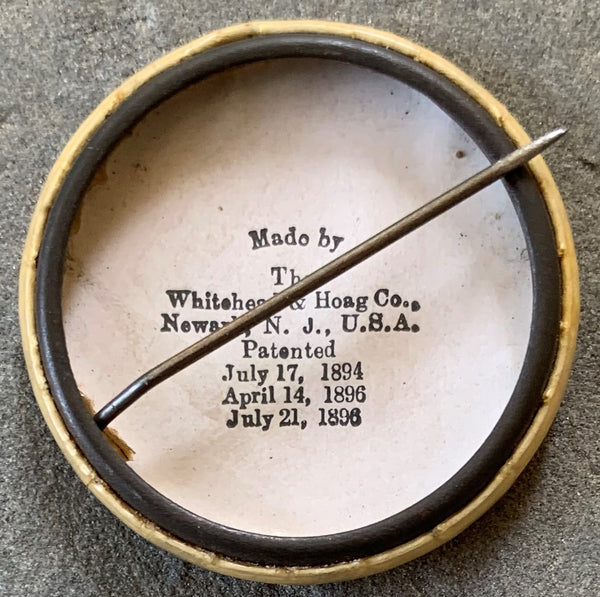 Made by
Th
Whitehead & Hoag Co.,
Newark, N. J., U.S.A.
Patented
July 17, 1894
April 14, 1896
July 21, 1896